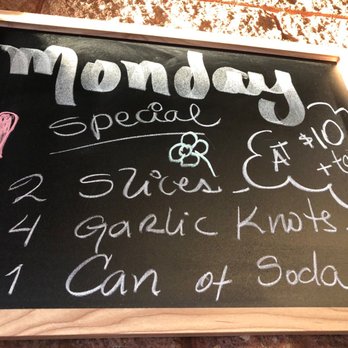 Monday
special
At $10
2 Slices
4 Garlic Knots
1 Can of Soda